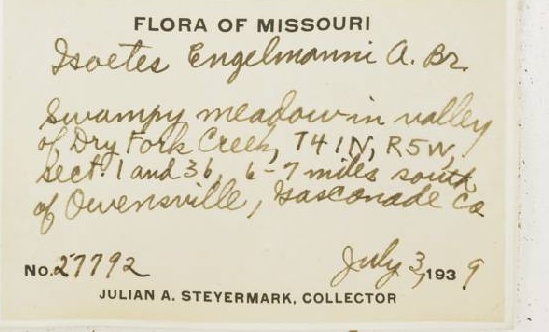 FLORA OF MISSOURI
Isoetes Engelmanni A. Br.
Swampy meadow in valley
of Dry Fork Creek, T41N, R5W,
sect. 1 and 36, 6-7 miles south
of Owensville, Gasconade Co
No. 27792 July 3, 1939
JULIAN A. STEYERMARK, COLLECTOR